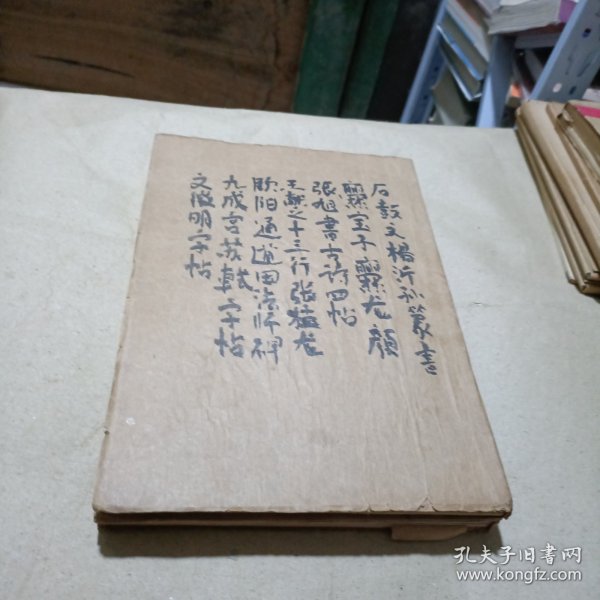 石鼓文楊沂孙篆書
爨宝子爨龙颜
張旭書古詩四帖
王献之十三行張猛龙
欧阳通道因法师碑
九成宫苏軾字帖
文徵明字帖
孔夫子旧書网
www.kongfz.com